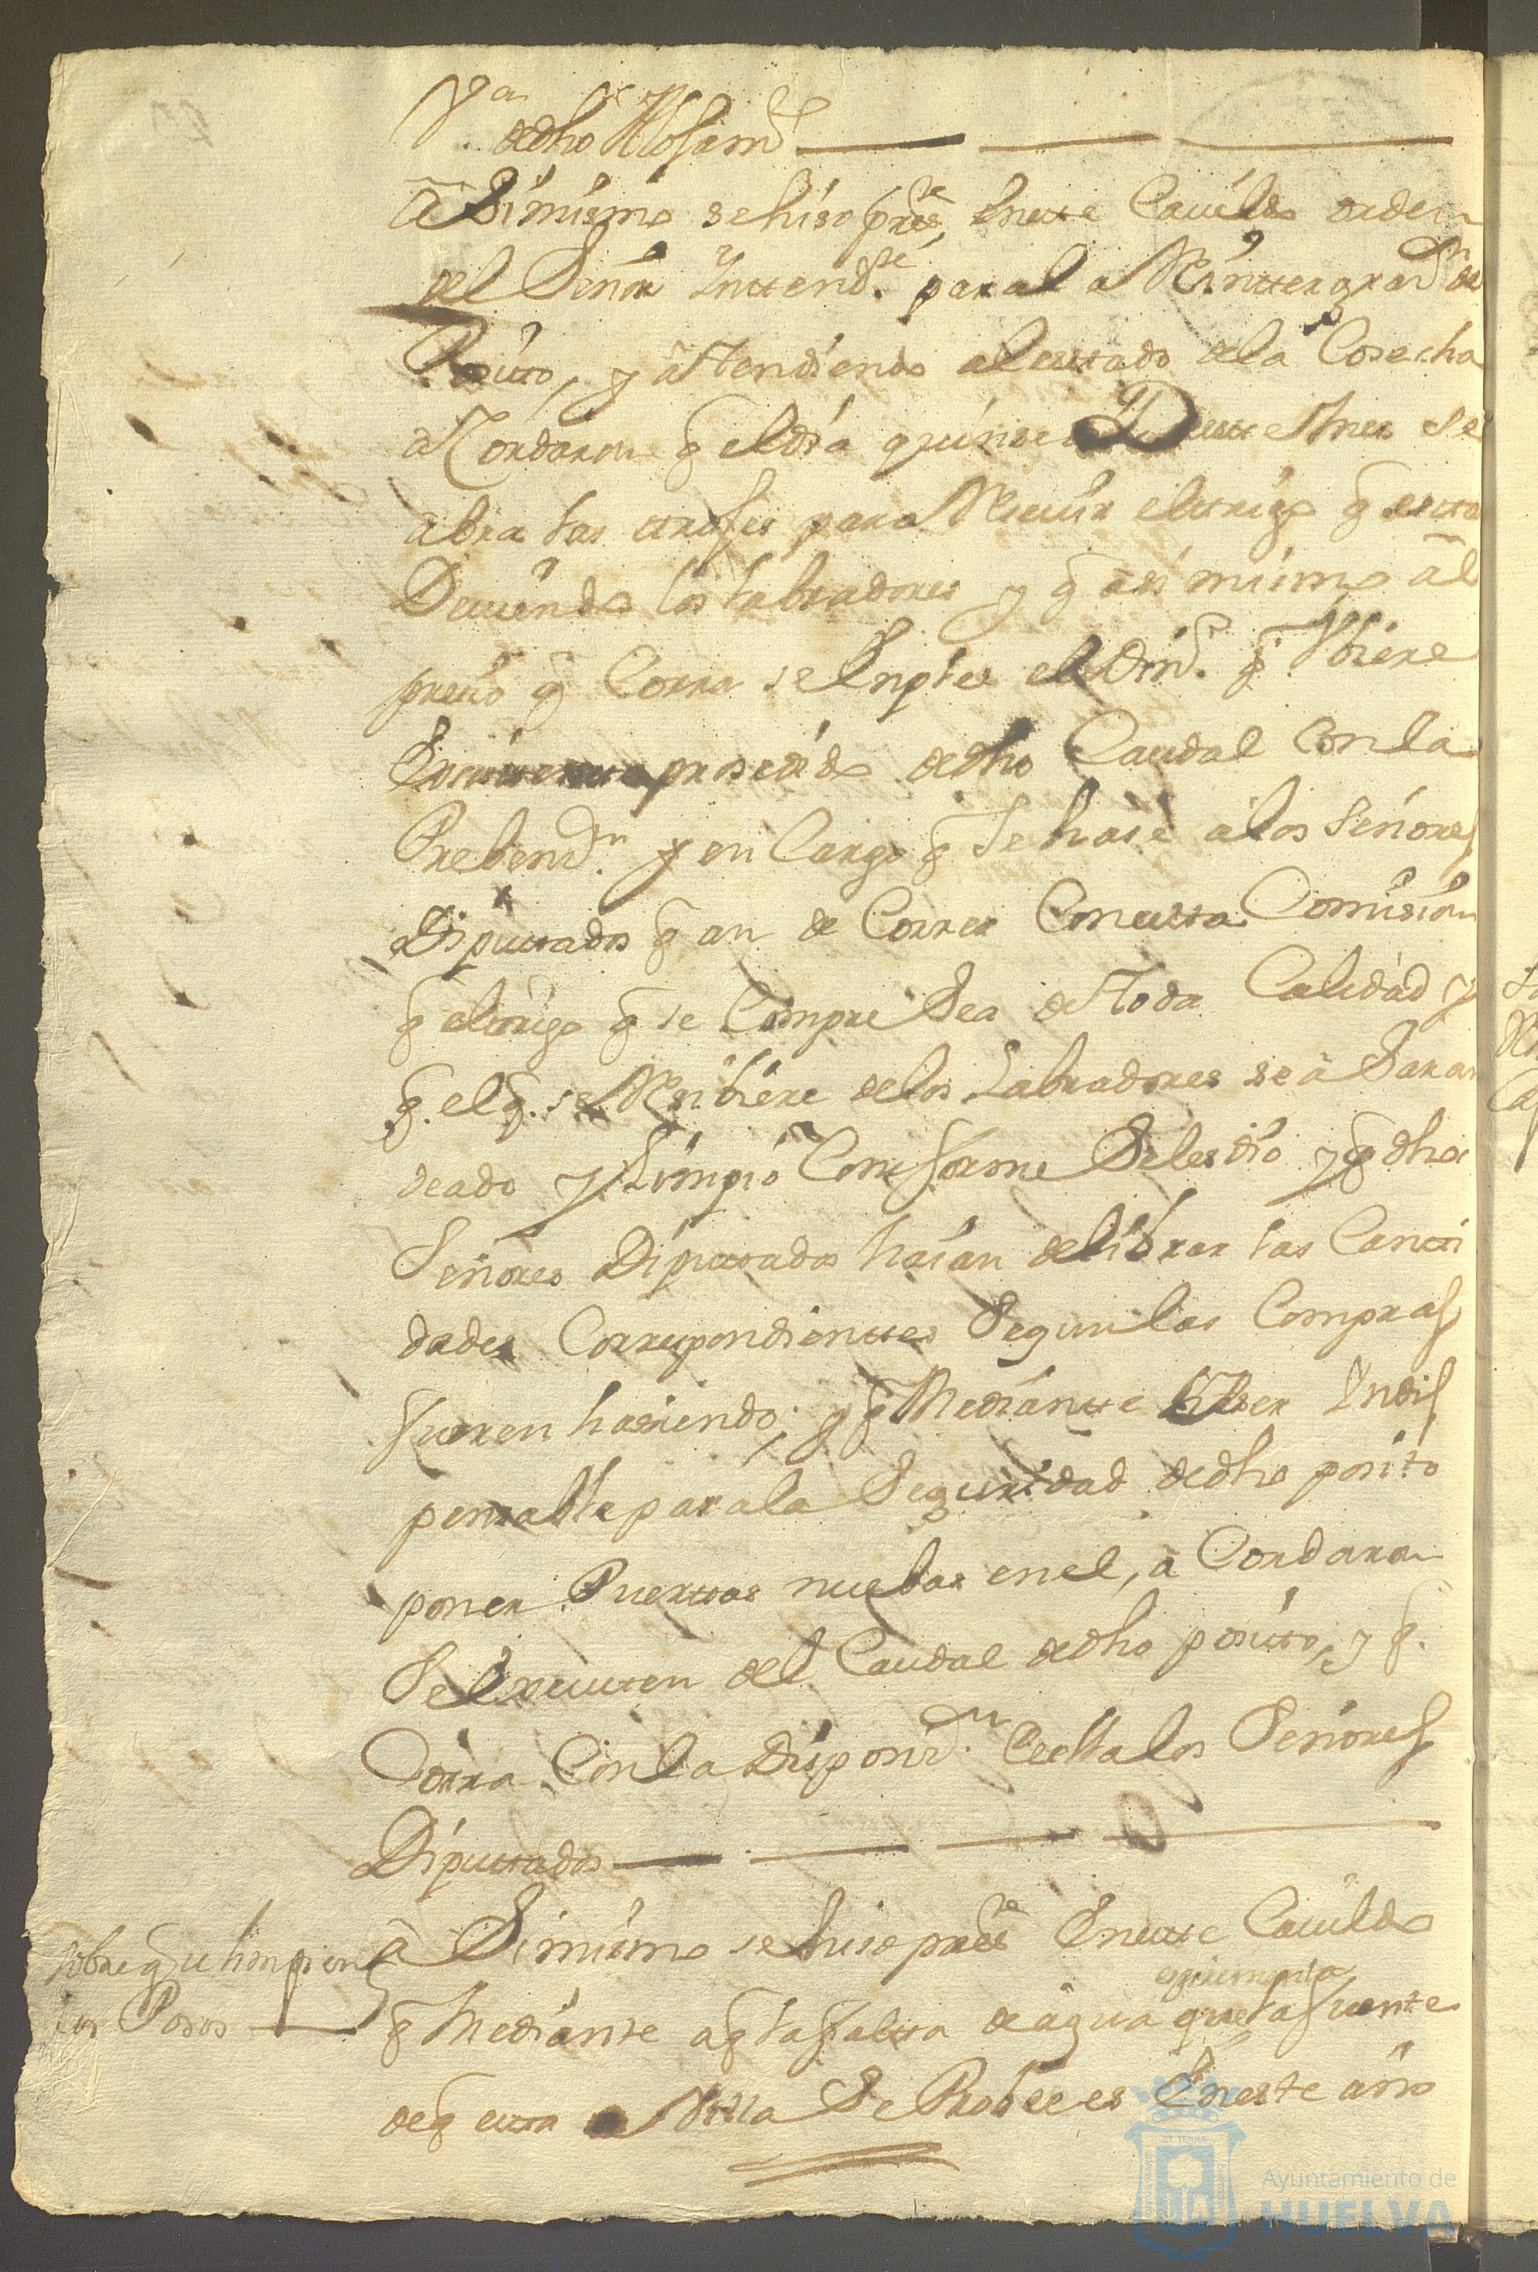 de dho Alojam.to
a Simismo se hiso pres.te Eneste Cavildo orden
del Señor Inttend.te para la Reinttegraz.n de
Posito, y attendiendo alestado dela Cosecha
aCordaron q̃ eldia quinse Deeste mes se
abra las troxes para Resivir eltrigo q̃ estta
Deviendo los labradores y q̃ asi mismo al
presio q̃ Corra se Enplee eldin.o q̃ Vbiere
prosedido de dho Caudal Con la
Prebenz.n y en Cargo q̃ se hase alos señores
Diputtados q̃ an de Correr Con estta Comision
q̃ eltrigo q̃ se Compre Sea de toda Calidad y
q̃. el q̃. se Resibiere delos Labradores sea Saran
deado y Limpio Conforme Seles dio y q̃ dhos
Señores Diputtados haian delibrar las Canti
dades Correspondienttes Segun las Compras
fueren hasiendo; y q̃ Mediantte Aser Indis
pensable para la Seguridad de dho posito
poner Puerttas nuebas en el, a Cordaron
Se Executen del Caudal de dho positto, y q̃.
Corra Con la Disposiz.n de ella los Señores
Diputtados
Sobre q̃ se limpien
los Posos
a Simismo se hiso pres.te Eneste Cavildo
q̃ Mediante aq̃ la falta de agua
esperimenta
que la fuente
deq̃ esta Villa Se Probee es Eneste año
Ayuntamiento de
HUELVA